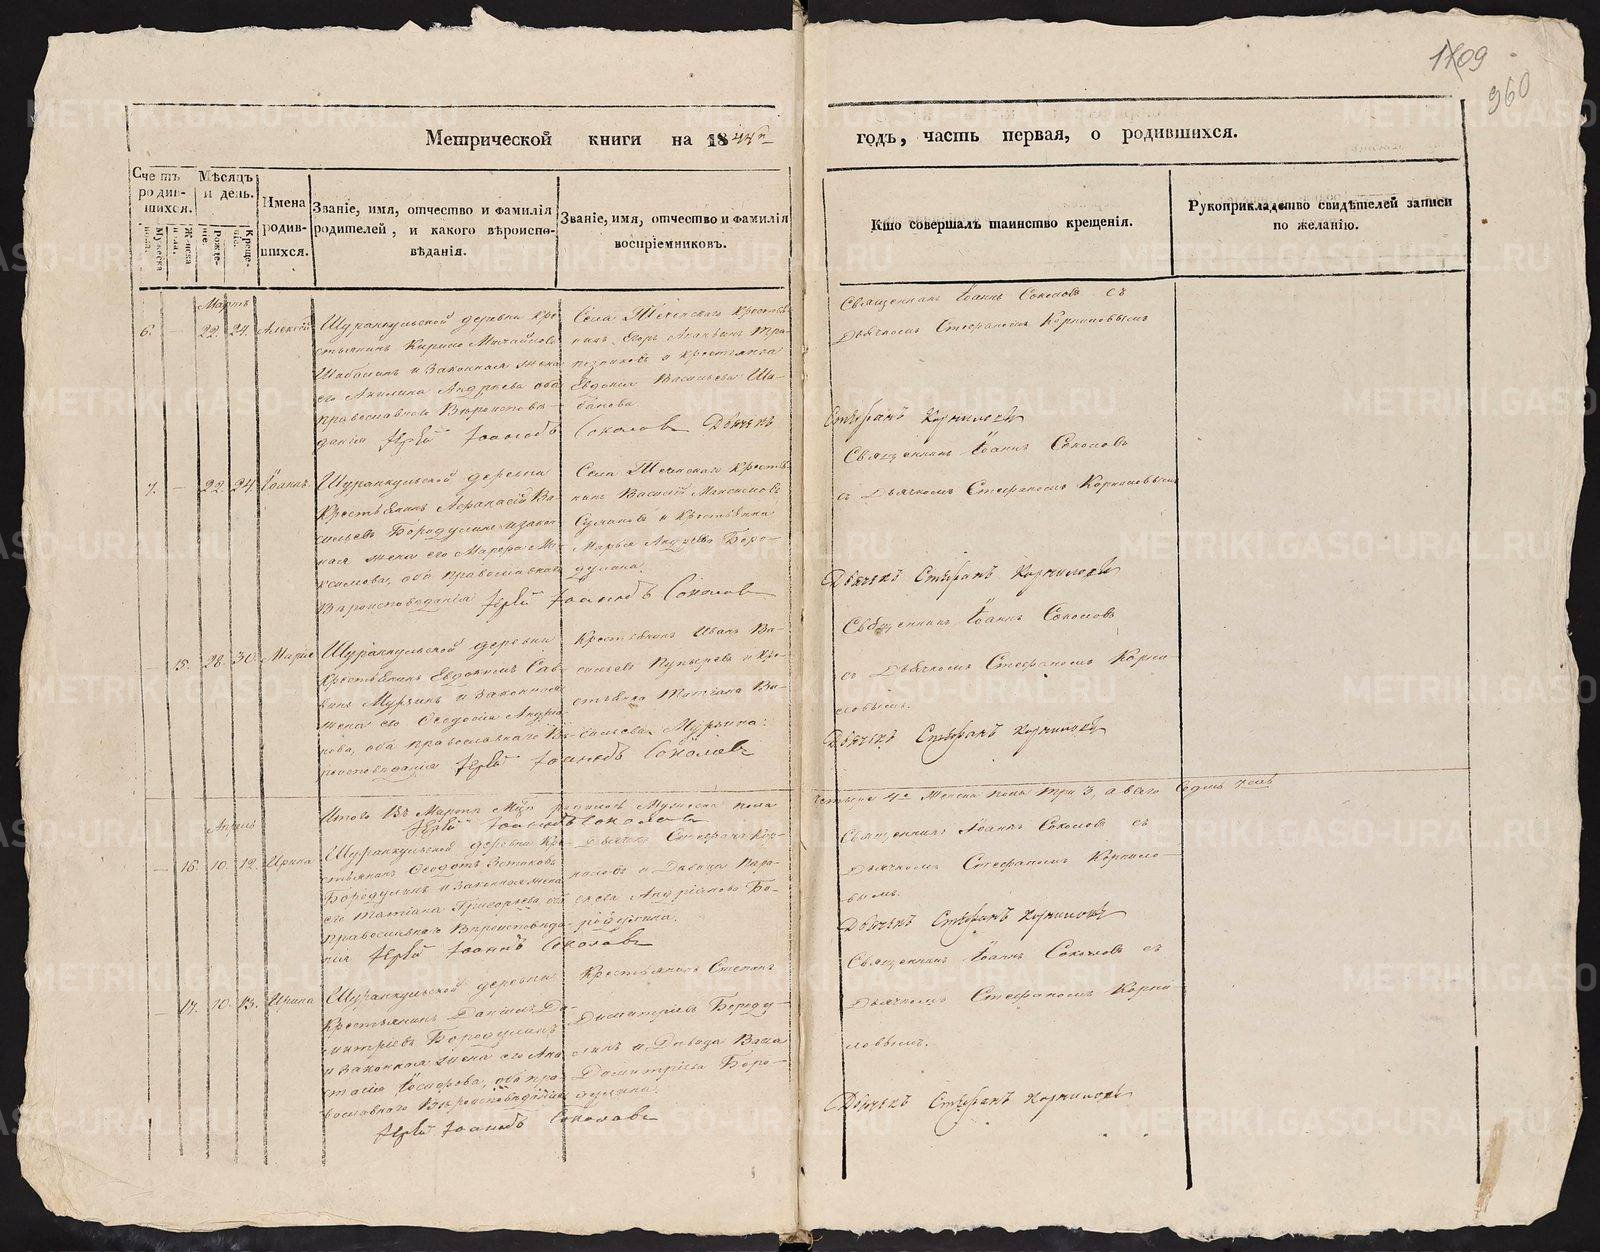 1809
960
Метрической книги на 1844й годъ, часть первая, о родившихся.
Счетъ родившихся.
Мужеска пола.
Женска пола.
Мѣсяцъ и день.
Рожденіе.
Крещеніе.
Имена родившихся.
Званіе, имя, отчество и фамилія родителей, и какого вѣроисповѣданія.
Званіе, имя, отчество и фамилія воспріемниковъ.
Кто совершалъ таинство крещенія.
Рукоприкладство свидѣтелей записи по желанію.
Мартъ
6. — 22. 24. Алексѣй
Шуранкульской деревни Кре-
стьянинъ Кирило Михайловъ
Шабалинъ и законная жена
его Акилина Андреева оба
православнаго Вѣроисповѣ-
данія Іерей Іоаннъ Соколовъ Дьячекъ
Села Теченскаго Крестья-
нинъ Егоръ
и крестьянка
Евдокія Васильева Ша-
Священникъ Іоаннъ Соколовъ съ
Дьячкомъ Стефаномъ Корниловымъ
Стефанъ Корниловъ
7. — 22. 24. Іоаннъ
Шуранкульской деревни
Крестьянинъ Афанасій Ва-
сильевъ Бородулинъ и закон-
ная жена его Марфа Ма-
ксимова, оба православнаго
Вѣроисповѣданія Іерей Іоаннъ Соколовъ
Села Теченскаго Крестья-
нинъ Василій Максимовъ
и Крестьянка
Марья Андреева Боро-
дулина.
Священникъ Іоаннъ Соколовъ
съ Дьячкомъ Стефаномъ Корниловымъ
Дьячекъ Стефанъ Корниловъ
— 15. 28. 30. Марія
Шуранкульской деревни
Крестьянинъ Евдокимъ Сав-
винъ Мурзинъ и законная
жена его Феодосія Андріа-
нова, оба православнаго Вѣ-
роисповѣданія Іерей Іоаннъ Соколовъ
Крестьянинъ Иванъ Ва-
сильевъ Пупыревъ и Кре-
стьянка Татіана Ва-
сильева Мурзина.
Священникъ Іоаннъ Соколовъ
съ Дьячкомъ Стефаномъ Корни-
ловымъ.
Дьячекъ Стефанъ Корниловъ
Итого Въ Мартѣ М-цѣ родилось Мужеска пола четыре 4. Женска пола три 3, а всего седмь 7
Іерей Іоаннъ Соколовъ
Апрѣль
— 16. 10. 12. Ирина
Шуранкульской деревни Кре-
стьянинъ Феодотъ
Бородулинъ и законная жена
его Татіана Григорьева, оба
православнаго Вѣроисповѣда-
нія Іерей Іоаннъ Соколовъ
Дьячекъ Стефанъ Кор-
ниловъ и Дѣвица Пара-
скева Андріанова Бо-
родулина.
Священникъ Іоаннъ Соколовъ съ
Дьячкомъ Стефаномъ Корнило-
вымъ.
Дьячекъ Стефанъ Корниловъ
— 17. 10. 13. Ирина
Шуранкульской деревни
Крестьянинъ Даніилъ Ди-
митріевъ Бородулинъ
и законная жена его Ана-
стасія Іосифова, оба пра-
вославнаго Вѣроисповѣданія
Іерей Іоаннъ Соколовъ
Крестьянинъ Степанъ
Димитріевъ Бороду-
линъ и Дѣвица Васса
Димитріева Боро-
дулина.
Священникъ Іоаннъ Соколовъ съ
Дьячкомъ Стефаномъ Корни-
ловымъ.
Дьячекъ Стефанъ Корниловъ
METRIKI.GASO-URAL.RU